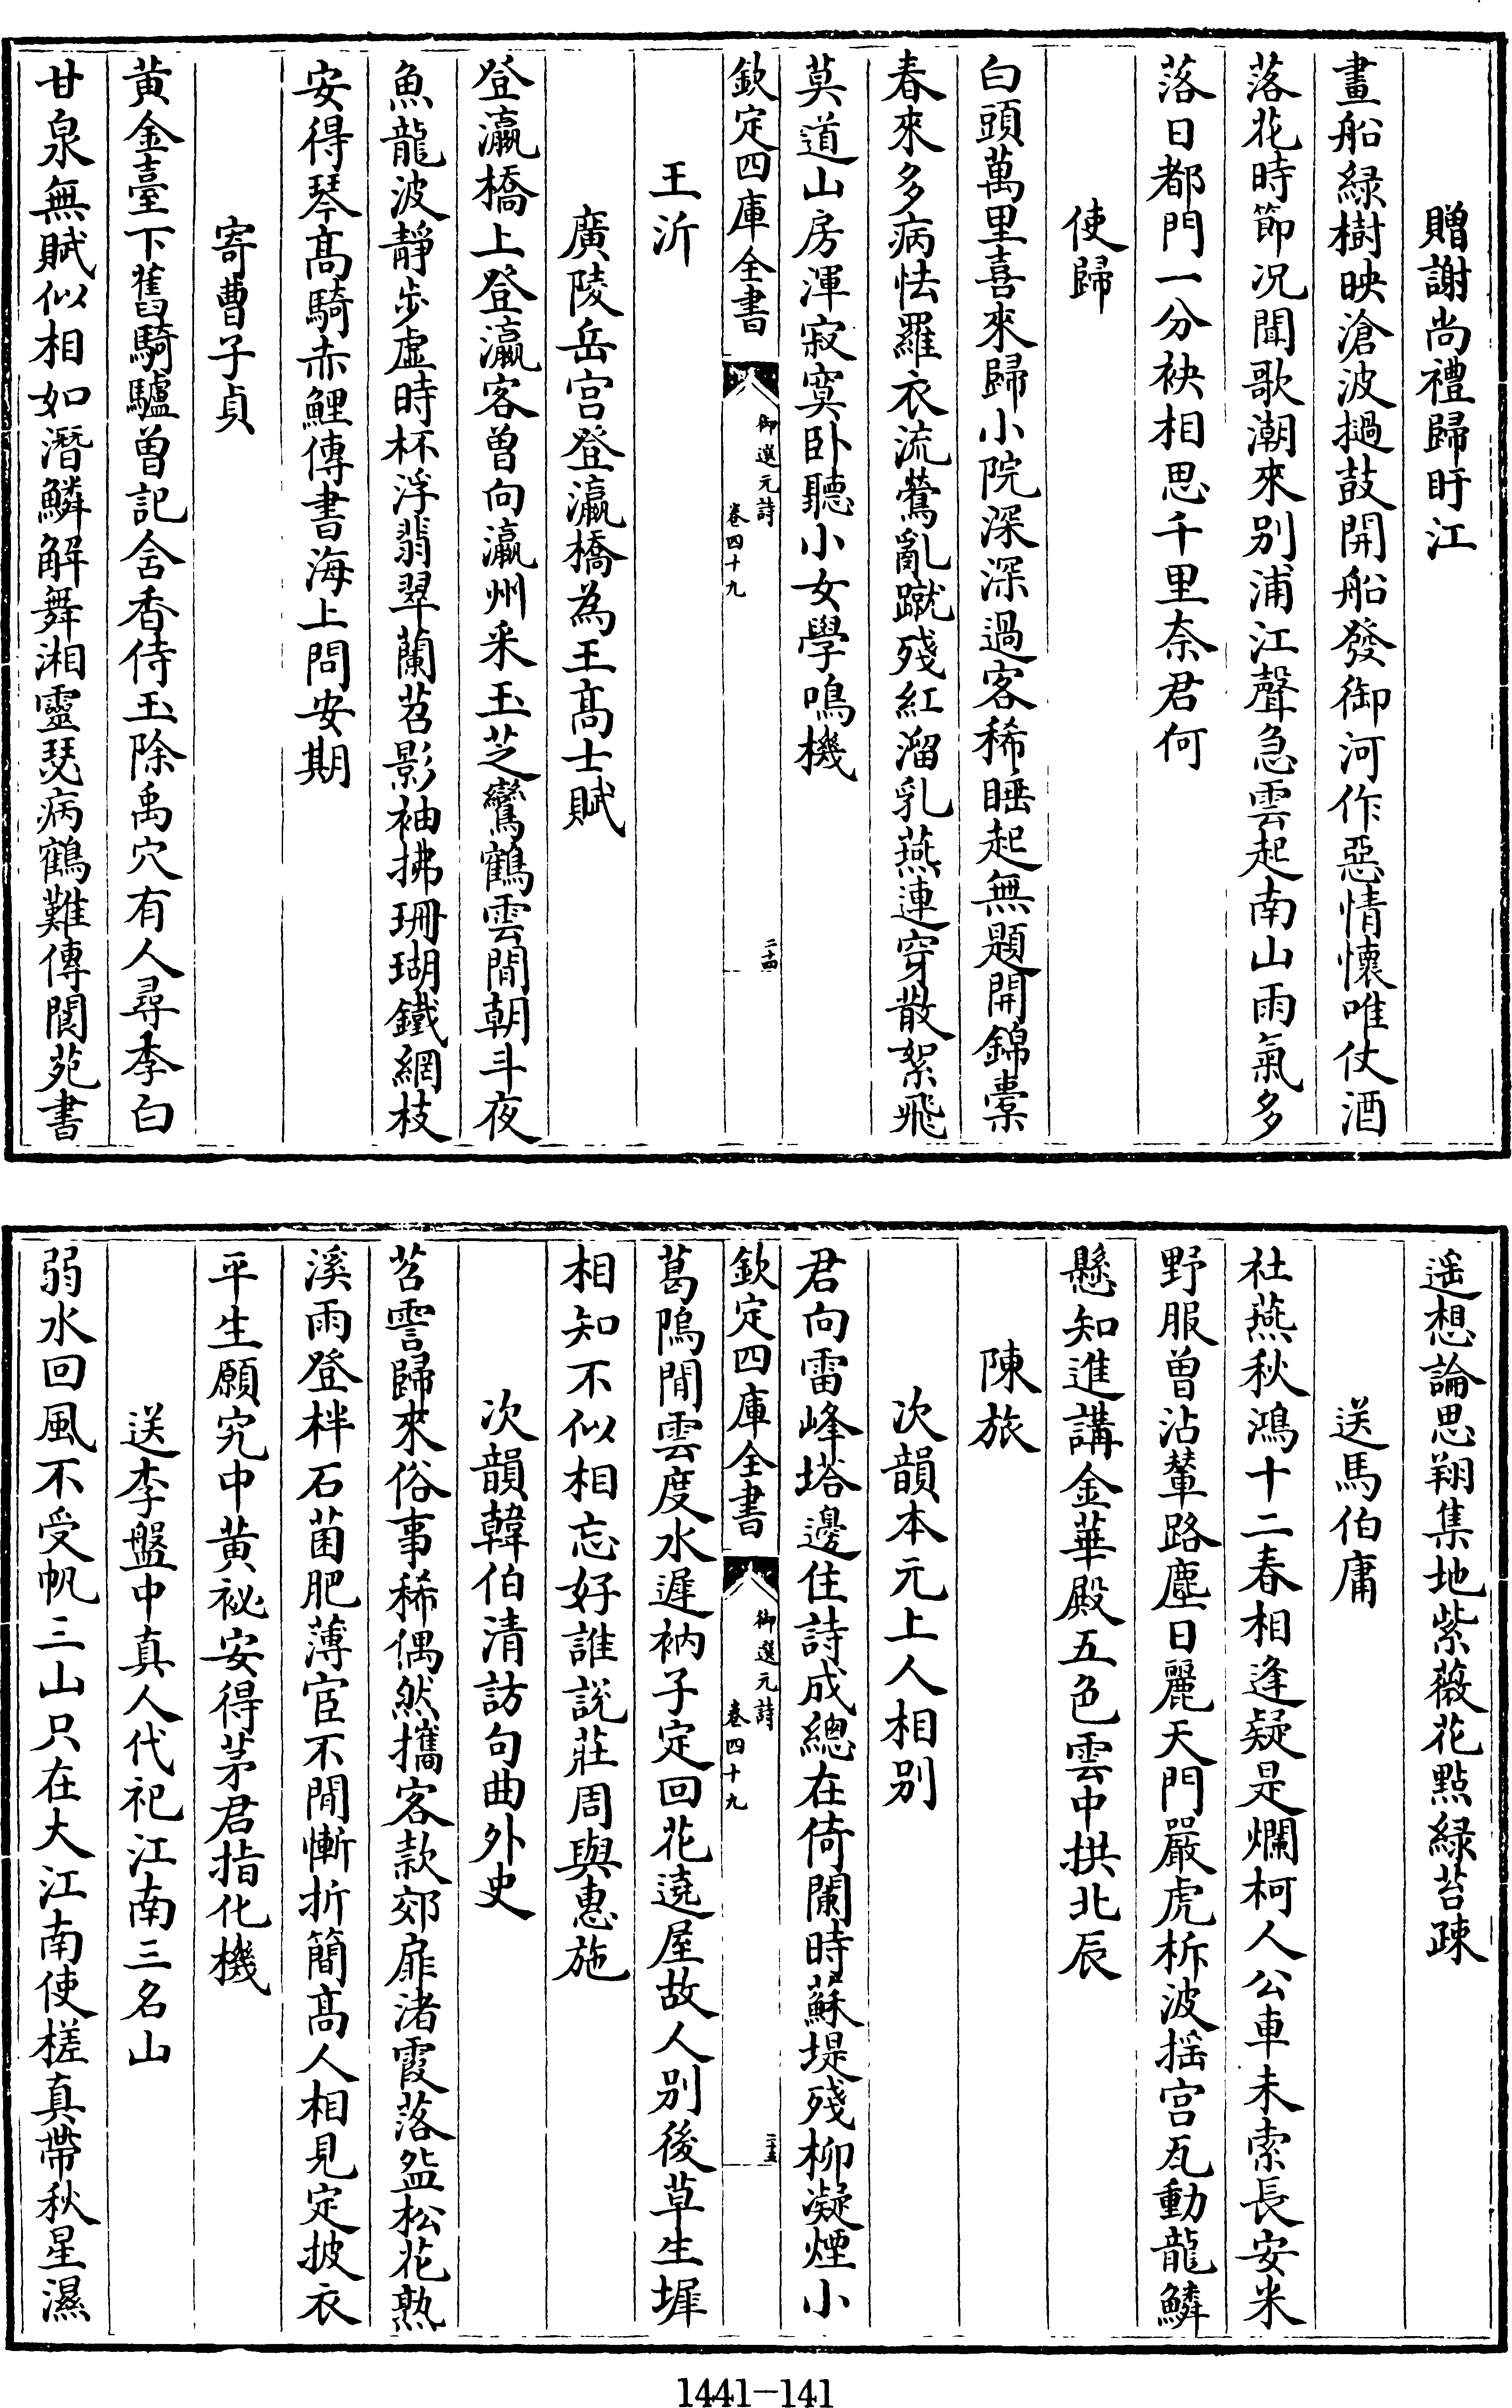 贈謝尚禮歸盱江
畫船緑樹映滄波撾鼓開船發御河作惡情懷唯仗酒
落花時節况聞歌潮來别浦江聲急雲起南山雨氣多
落日都門一分袂相思千里奈君何
使歸
白頭萬里喜來歸小院深深過客稀睡起無題開錦橐
春來多病怯羅衣流鶯亂蹴殘紅溜乳燕連穿散絮飛
莫道山房渾寂寞卧聽小女學鳴機
欽定四庫全書
御選元詩
卷四十九
二十四
王沂
廣陵岳宫登瀛橋為王髙士賦
登瀛橋上登瀛客曾向瀛州采玉芝鸞鶴雲間朝斗夜
魚龍波靜步虚時杯浮翡翠蘭苕影袖拂珊瑚鐵網枝
安得琴髙騎赤鯉傳書海上問安期
寄曹子貞
黄金臺下舊騎驢曾記含香侍玉除禹穴有人尋李白
甘泉無賦似相如潛鱗解舞湘靈瑟病鶴難傳閬苑書
遥想論思翔集地紫薇花點緑苔疎
送馬伯庸
社燕秋鴻十二春相逢疑是爛柯人公車未索長安米
野服曾沾輦路塵日麗天門嚴虎柝波摇宫瓦動龍鱗
懸知進講金華殿五色雲中拱北辰
陳旅
次韻本元上人相别
君向雷峰塔邊住詩成總在倚闌時蘇堤殘柳凝煙小
欽定四庫全書
御選元詩
卷四十九
二十五
葛隖閒雲度水遲衲子定回花遶屋故人别後草生墀
相知不似相忘好誰説莊周與惠施
次韻韓伯清訪句曲外史
苕霅歸來俗事稀偶然攜客款郊扉渚霞落盌松花熟
溪雨登柈石菌肥薄宦不閒慚折簡髙人相見定披衣
平生願究中黄祕安得茅君指化機
送李盤中真人代祀江南三名山
弱水回風不受帆三山只在大江南使槎真帶秋星濕
1441—141